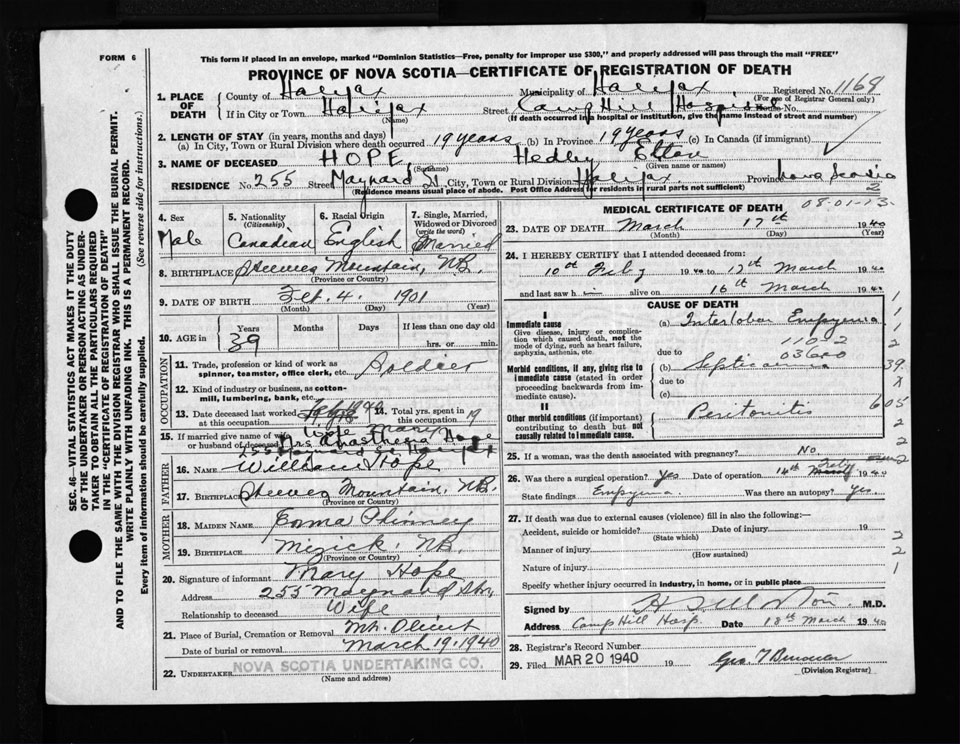 FORM 6
This form if placed in an envelope, marked "Dominion Statistics—Free, penalty for improper use $300," and properly addressed will pass through the mail "FREE"
PROVINCE OF NOVA SCOTIA—CERTIFICATE OF REGISTRATION OF DEATH
1. PLACE OF DEATH
County of Halifax Municipality of Halifax Registered No. 1169
(For use of Registrar General only)
If in City or Town Halifax Street Camp Hill Hospital House No.
(Name) (If death occurred in a hospital or institution, give the name instead of street and number)
2. LENGTH OF STAY (in years, months and days)
(a) In City, Town or Rural Division where death occurred 19 years (b) In Province 19 years (c) In Canada (if immigrant)
3. NAME OF DECEASED HOPE, Hedley
(Surname) (Given name or names)
RESIDENCE No. 255 Street Maynard St. City, Town or Rural Division Halifax Province Nova Scotia
(Residence means usual place of abode. Post Office Address for residents in rural parts not sufficient)
2
4. Sex Male
5. Nationality (Citizenship) Canadian
6. Racial Origin English
7. Single, Married, Widowed or Divorced (write the word) Married
8. BIRTHPLACE Steeves Mountain, NB.
(Province or Country)
9. DATE OF BIRTH Feb. 4. 1901
(Month) (Day) (Year)
10. AGE in 39 Years Months Days If less than one day
hrs. or min.
OCCUPATION
11. Trade, profession or kind of work as spinner, teamster, office clerk, etc. Soldier
12. Kind of industry or business, as cotton-mill, lumbering, bank, etc.
13. Date deceased last worked at this occupation 1940 14. Total yrs. spent in 19
15. If married give name of wife or husband of deceased Mrs Hope
255 Maynard St Halifax
FATHER
16. NAME William Hope
17. BIRTHPLACE Steeves Mountain, NB.
(Province or Country)
MOTHER
18. MAIDEN NAME Emma Phinney
19. BIRTHPLACE NB.
(Province or Country)
20. Signature of informant Mary Hope
Address 255 Maynard Str,
Relationship to deceased Wife
21. Place of Burial, Cremation or Removal Mt. Olivet
Date of burial or removal March 19, 1940
22. UNDERTAKER NOVA SCOTIA UNDERTAKING CO.
(Name and address)
MEDICAL CERTIFICATE OF DEATH 08-01-13
23. DATE OF DEATH March 17th 1940
(Month) (Day) (Year)
24. I HEREBY CERTIFY that I attended deceased from:
10th Feby 1940 to 17th March 1940
and last saw h im alive on 16th March 1940
CAUSE OF DEATH
I
Immediate cause (a) Interlobar Empyema
Give disease, injury or complication which caused death, not the mode of dying, such as heart failure, asphyxia, asthenia, etc.
1102
due to 03600
Morbid conditions, if any, giving rise to immediate cause (stated in order proceeding backwards from immediate cause).
(b) Septicaemia
due to
(c)
II
Other morbid conditions (if important) contributing to death but not causally related to immediate cause. Peritonitis
1
1
2
39
x
605
2
2
25. If a woman, was the death associated with pregnancy? No
26. Was there a surgical operation? Yes Date of operation 14th Feby 1940
State findings Empyema. Was there an autopsy? Yes.
27. If death was due to external causes (violence) fill in also the following:—
Accident, suicide or homicide? Date of injury 19 2
(State which)
Manner of injury 2
(How sustained)
Nature of injury 1
Specify whether injury occurred in industry, in home, or in public place
Signed by M.D.
Address Camp Hill Hosp. Date 18th March 1940
28. Registrar's Record Number
29. Filed MAR 20 1940 19 Geo T
(Division Registrar)
SEC. 46—VITAL STATISTICS ACT MAKES IT THE DUTY
OF THE UNDERTAKER OR PERSON ACTING AS UNDER-
TAKER TO OBTAIN ALL THE PARTICULARS REQUIRED
IN THE "CERTIFICATE OF REGISTRATION OF DEATH"
AND TO FILE THE SAME WITH THE DIVISION REGISTRAR WHO SHALL ISSUE THE BURIAL PERMIT.
WRITE PLAINLY WITH UNFADING INK. THIS IS A PERMANENT RECORD.
Every item of information should be carefully supplied. (See reverse side for instructions.)